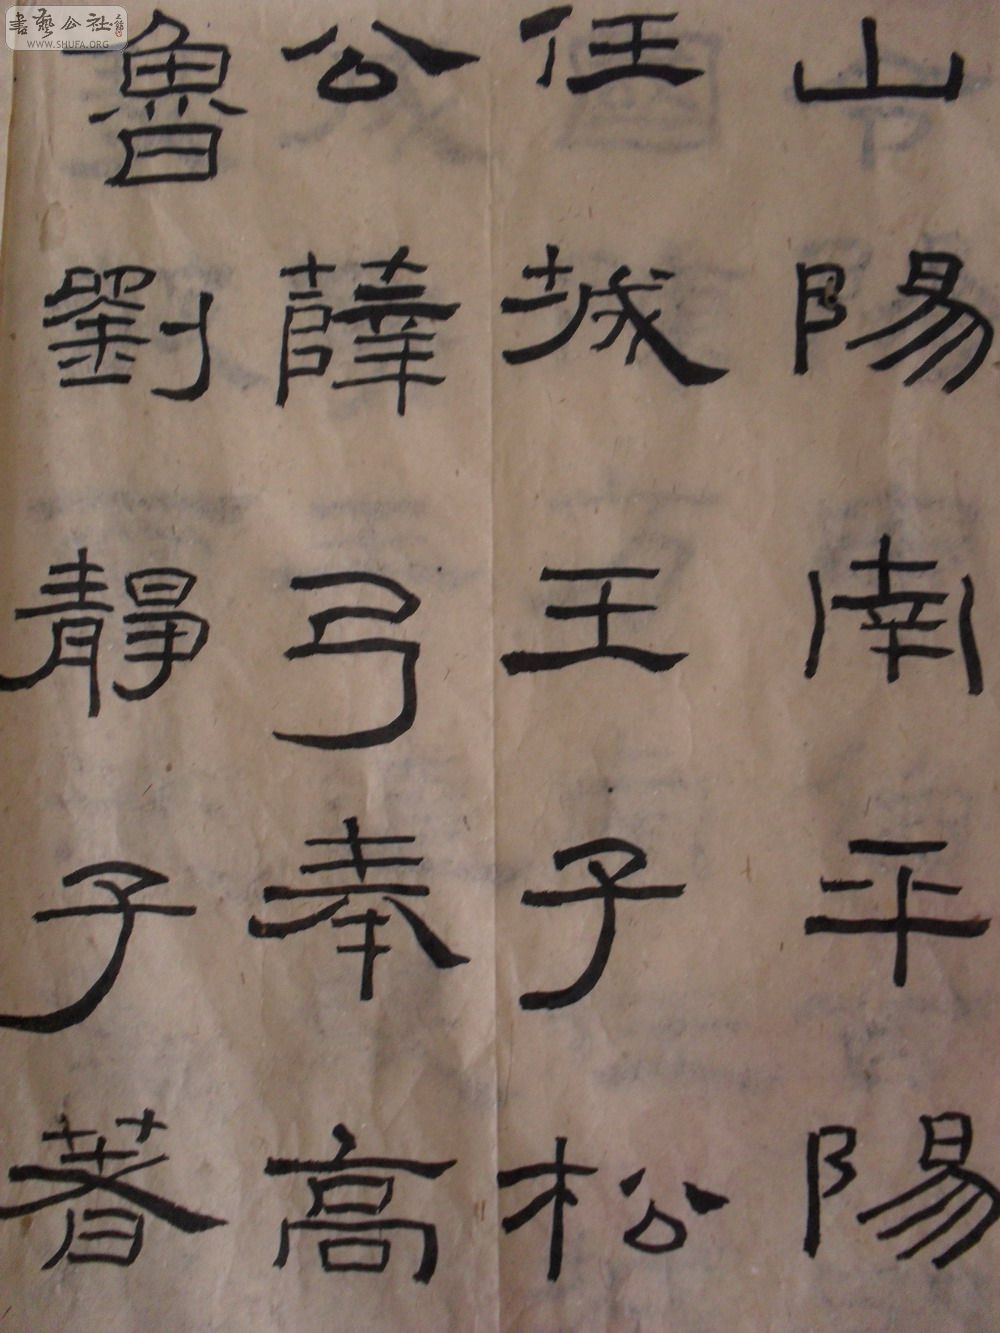 山陽南平陽
任城王子松
公薛弓奉高
魯劉靜子著
書藝公社
WWW.SHUFA.ORG